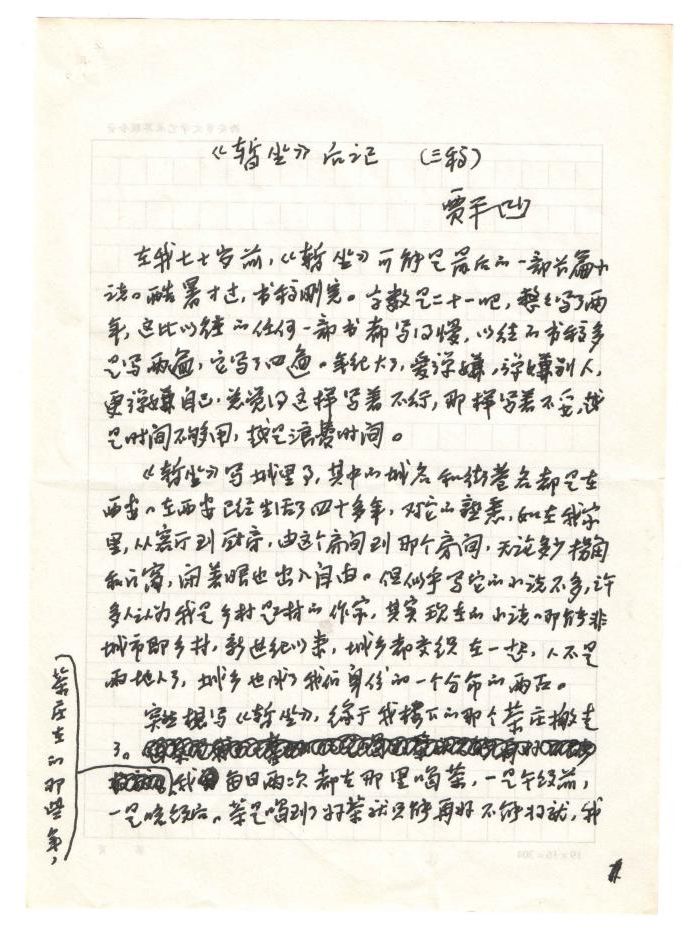 《暂坐》后记 (三稿)
贾平凹
在我七十岁前，《暂坐》可能是最后的一部长篇小
说。酷暑才过，书稿刚完。字数是二十一吧，整整写了两
年，这比以往的任何一部书都写得慢，以往的书稿多
是写两遍，它写了四遍。年纪大了，爱弹嫌，弹嫌别人，
更弹嫌自己，总觉得这样写着不行，那样写着不妥，越
是时间不够用，越是浪费时间。
《暂坐》写城里事，其中的城名和街巷名都是在
西安。在西安已经生活了四十多年，对它的熟悉，如在我家
里，从客厅到厨房，由这个房间到那个房间，无论多少拐角
和门窗，闭着眼也出入自由。但似乎写它的小说不多，许
多人认为我是乡村题材的作家，其实现在的小说，那能非
城市即乡村，新世纪以来，城乡都交织在一起，人不是
两地人了，城乡也成了我们身份的一个分布的两面。
突然想写《暂坐》，缘于我楼下的那个茶庄搬走
了。
我每日两次都去那里喝茶，一是午饭前，
一是晚饭后。茶是喝到了好茶就只能再好不能将就，我
茶庄在的那些年，
1
19×16=304